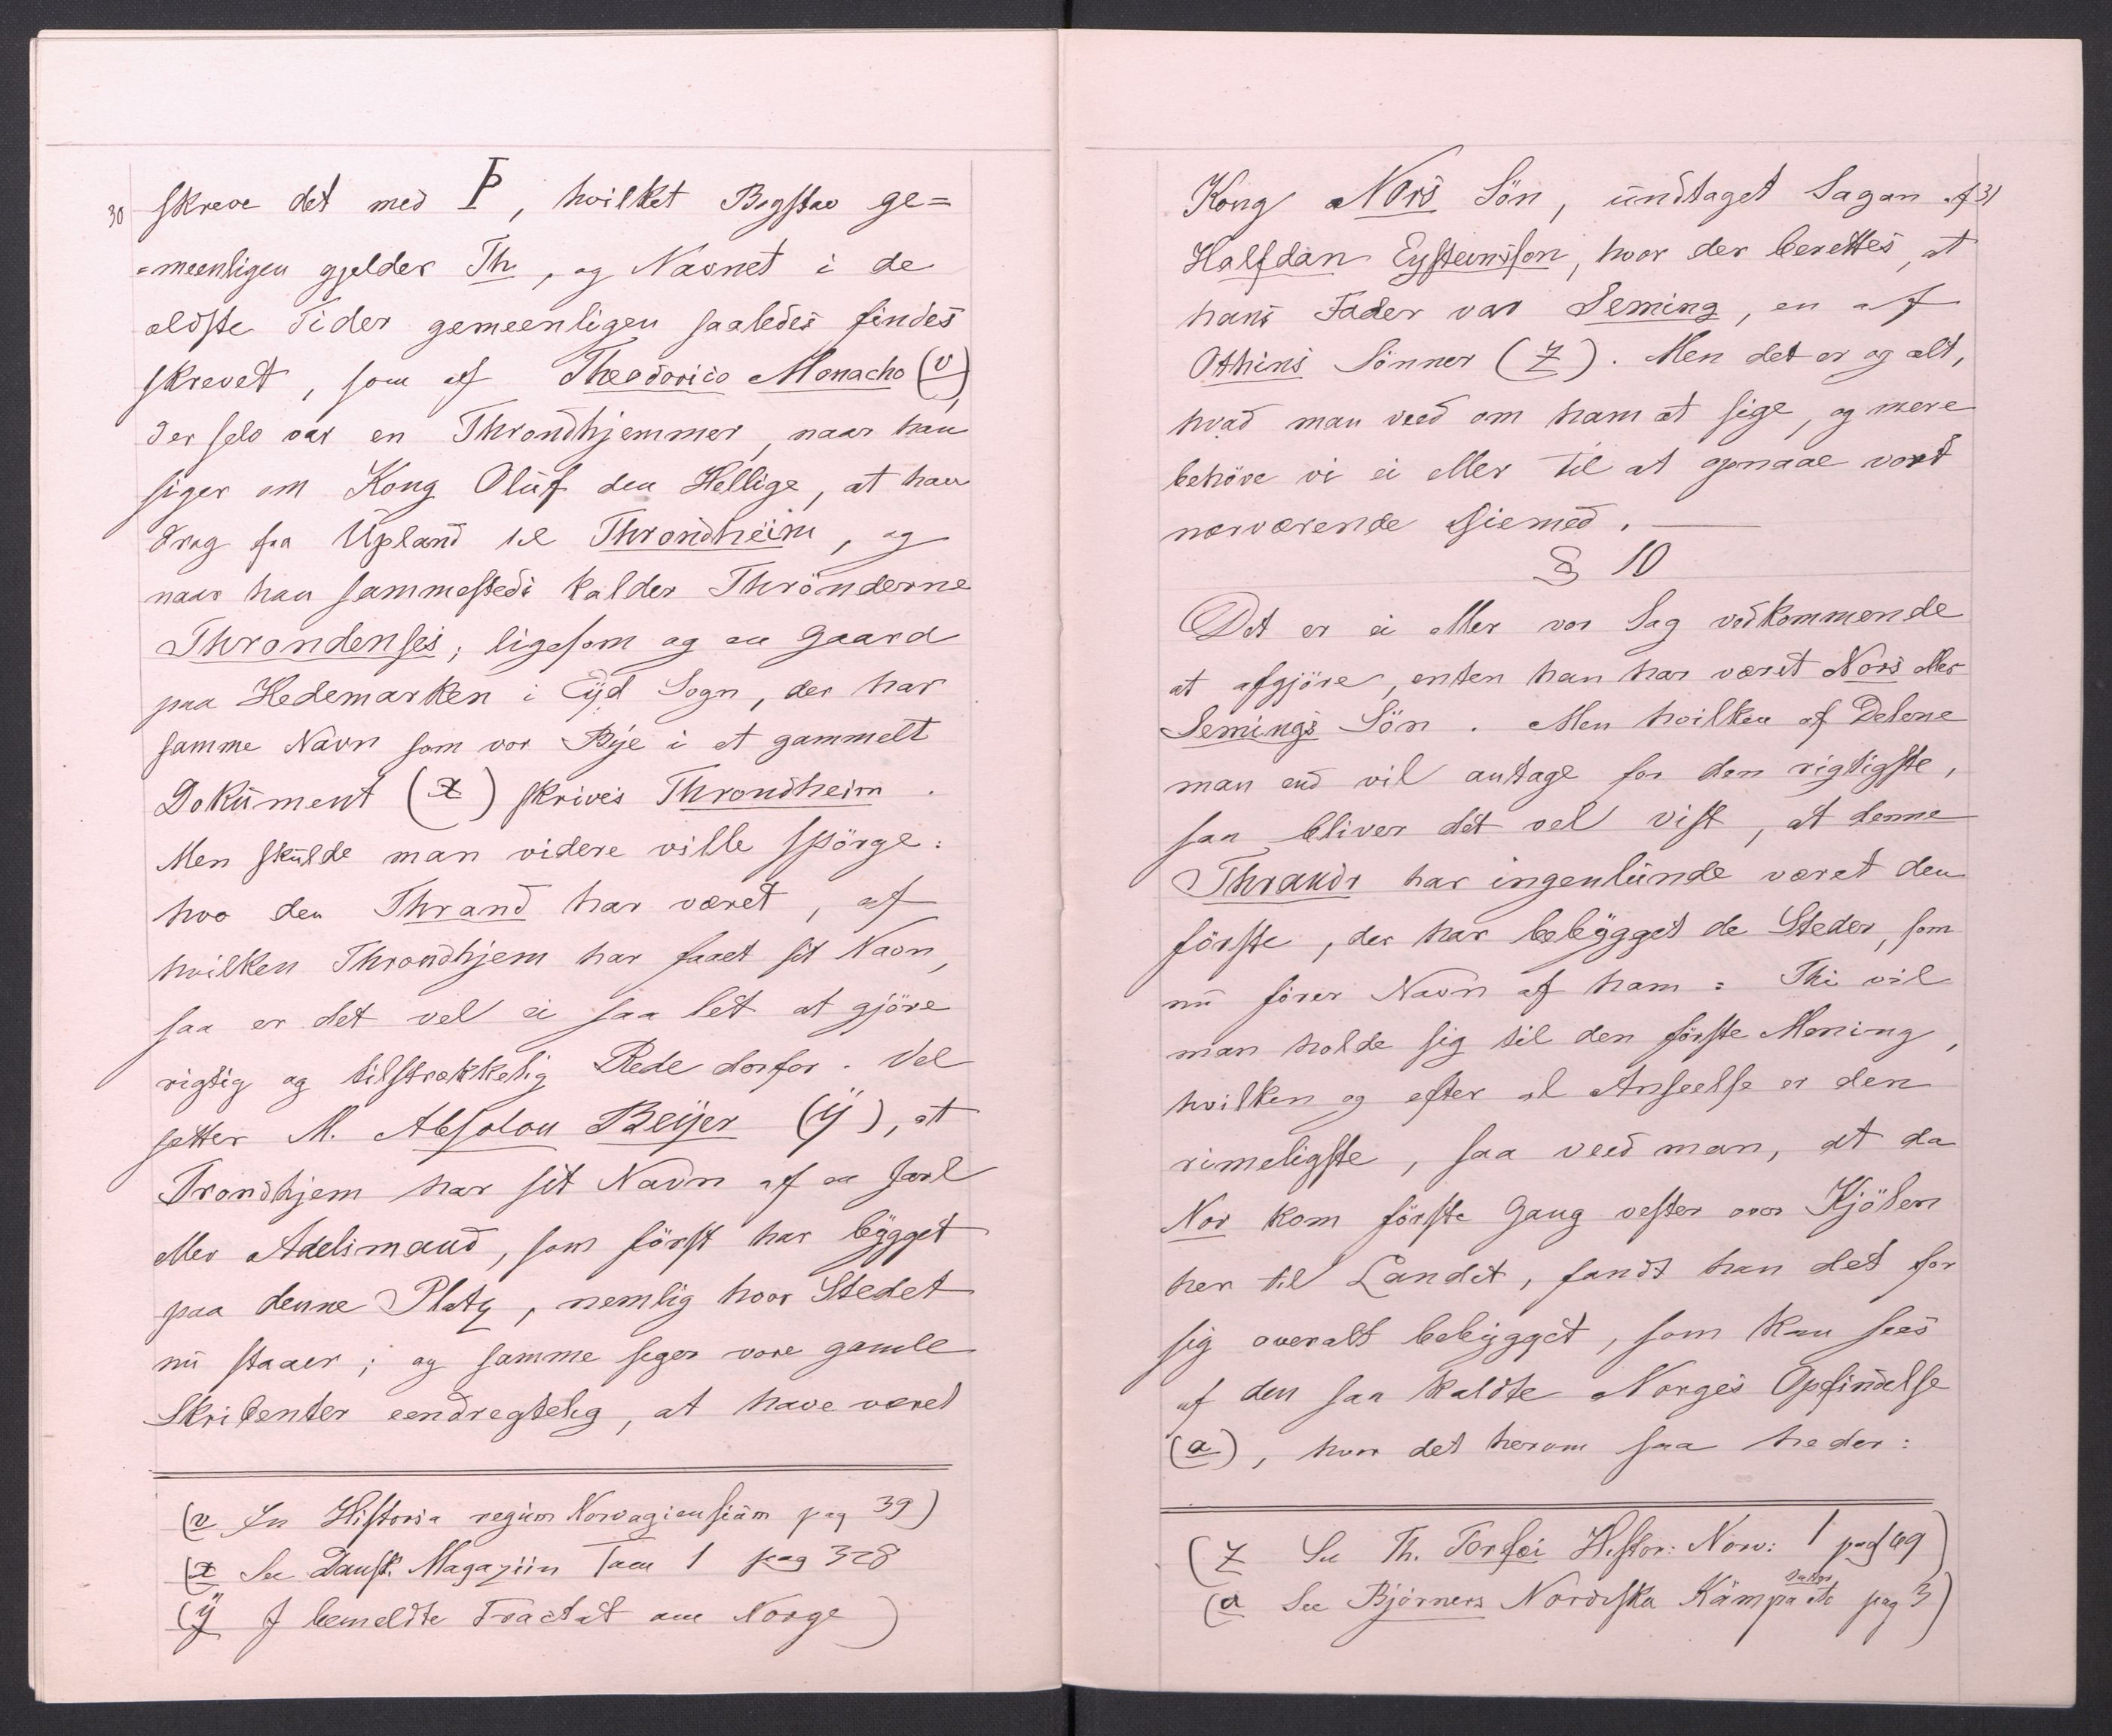 30
skreve det med Þ, hvilket Bogstav ge=
=meenligen gjelder Th, og Navnet i de
ældste Tider gemeenligen saaledes findes
skrevet, som af Theodorico Monacho (v),
der selv var en Throndhjemmer, naar han
siger om Kong Oluf den Hellige, at han
drog fra Upland til Throndheim, og
naar han sammesteds kalder Thrönderne
Throndenses; ligesom og en Gaard
paa Hedemarken i Eyd Sogn, der har
samme Navn som vor Bye i et gammelt
Dokument (x) skrives Throndheim.
Men skulde man videre ville spörge:
hvo den Thrand har været, af
hvilken Throndhjem har faaet sit Navn,
saa er det vel ei saa let at gjöre
rigtig og tilstrækkelig Rede derfor. Vel
setter M. Absolon Beÿer (ÿ), at
Trondhjem har sit Navn af en Jarl
eller Adelsmand, som först har bÿgget
paa denne Platz, nemlig hvor Stedet
nu staaer; og samme siger vore gamle
Skribenter eendregtelig, at have været
(v In Historia regum Norvagiensium pag 39)
(x See Dansk. Magaziin Tom 1 pag 328
(ÿ J bemeldte Tractat om Norge)
31
Kong Nors Sön, undtaget Sagan af
Halfdan Eysteinsson, hvor der berettes, at
hans Fader var Seming, en af
Othins Sönner (z). Men det er og alt,
hvad man veed om ham at sige, og mere
behöve vi ei eller til at opnaae vort
nærværende Öiemed. —
§ 10
Det er ei eller vor Sag vedkommende
at afgjöre, enten han har været Nors eller
Semings Sön. Men hvilken af Delene
man end vil antage for den rigtigste,
saa bliver det vel vist, at denne
Thrandr har ingenlunde været den
förste, der har bebÿgget de Steder, som
nu förer Navn af ham: Thi vil
man holde sig til den förste Mening,
hvilken og efter al Anseelse er den
rimeligste, saa veed man, at da
Nor kom förste Gang vester over Kjölen
her til Landet, fandt han det for
sig overalt bebÿgget, som kan sees
af den saa kaldte Norges Opfindelse
(a), hvor det herom saa heder:
(z See Th. Torfæi Histor: Norv: 1 pag 149)
(a See Björners Nordiska Kämpa datar etc pag 3)